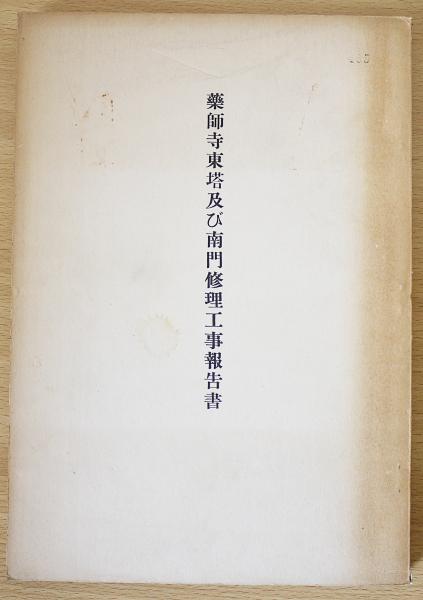 藥師寺東塔及び南門修理工事報告書